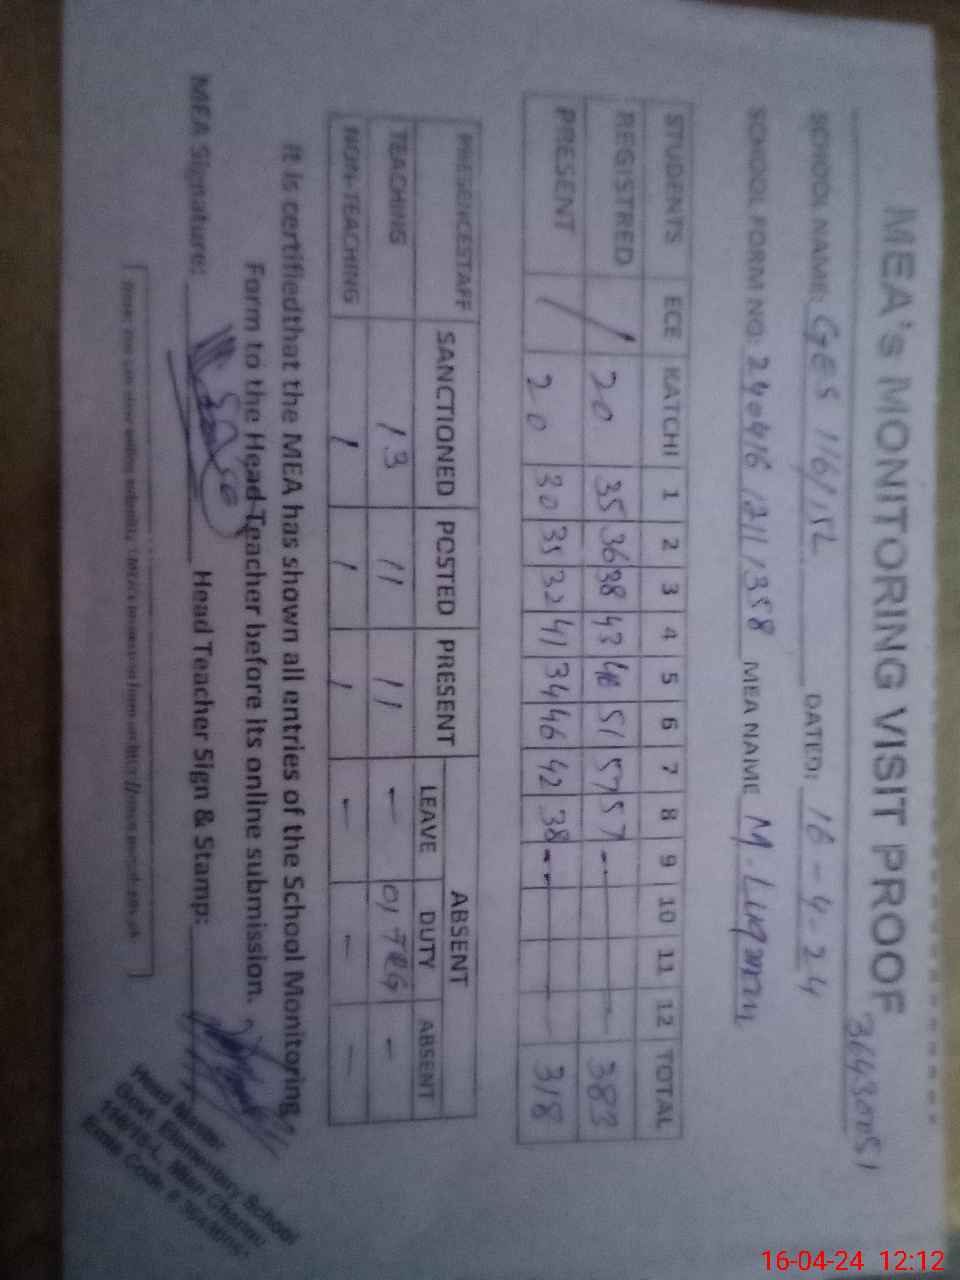 MEA's MONITORING VISIT PROOF
36430051
SCHOOL NAME: GES 116/15L DATED: 16-4-24
SCHOOL FORM NO: 240416 1211 1358 MEA NAME M. Luqman
STUDENTS ECE KATCHI 1 2 3 4 5 6 7 8 9 10 11 12 TOTAL
REGISTRED / 20 35 36 38 43 46 51 57 57 - 383
PRESENT / 20 30 35 32 41 34 46 42 38 - - 318
PRESENCESTAFF SANCTIONED POSTED PRESENT ABSENT
LEAVE DUTY ABSENT
TEACHING 13 11 11 - 01 TRG -
NON-TEACHING 1 1 1 - - -
It is certifiedthat the MEA has shown all entries of the School Monitoring
Form to the Head Teacher before its online submission.
MEA Signature: Head Teacher Sign & Stamp:
Head Master
Govt. Elementary School
116/15-L, Mian Channu
Emis Code #
16-04-24 12:12